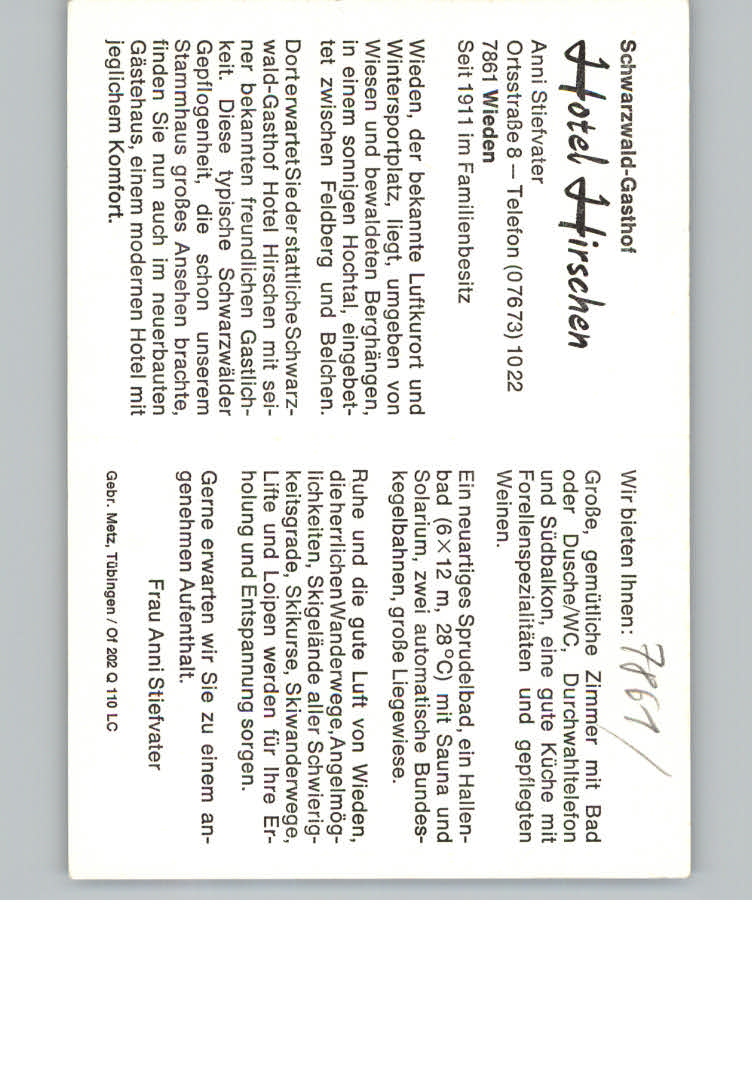 Schwarzwald-Gasthof
Hotel Hirschen
Anni Stiefvater
Ortsstraße 8 — Telefon (0 76 73) 10 22
7861 Wieden
Seit 1911 im Familienbesitz
Wieden, der bekannte Luftkurort und
Wintersportplatz, liegt, umgeben von
Wiesen und bewaldeten Berghängen,
in einem sonnigen Hochtal, eingebet-
tet zwischen Feldberg und Belchen.
Dort erwartet Sie der stattliche Schwarz-
wald-Gasthof Hotel Hirschen mit sei-
ner bekannten freundlichen Gastlich-
keit. Diese typische Schwarzwälder
Gepflogenheit, die schon unserem
Stammhaus großes Ansehen brachte,
finden Sie nun auch im neuerbauten
Gästehaus, einem modernen Hotel mit
jeglichem Komfort.
Wir bieten Ihnen: 7861/
Große, gemütliche Zimmer mit Bad
oder Dusche/WC, Durchwahltelefon
und Südbalkon, eine gute Küche mit
Forellenspezialitäten und gepflegten
Weinen.
Ein neuartiges Sprudelbad, ein Hallen-
bad (6 × 12 m, 28°C) mit Sauna und
Solarium, zwei automatische Bundes-
kegelbahnen, große Liegewiese.
Ruhe und die gute Luft von Wieden,
die herrlichen Wanderwege, Angelmög-
lichkeiten, Skigelände aller Schwierig-
keitsgrade, Skikurse, Skiwanderwege,
Lifte und Loipen werden für Ihre Er-
holung und Entspannung sorgen.
Gerne erwarten wir Sie zu einem an-
genehmen Aufenthalt.
Frau Anni Stiefvater
Gebr. Metz, Tübingen / Of 202 Q 110 LC